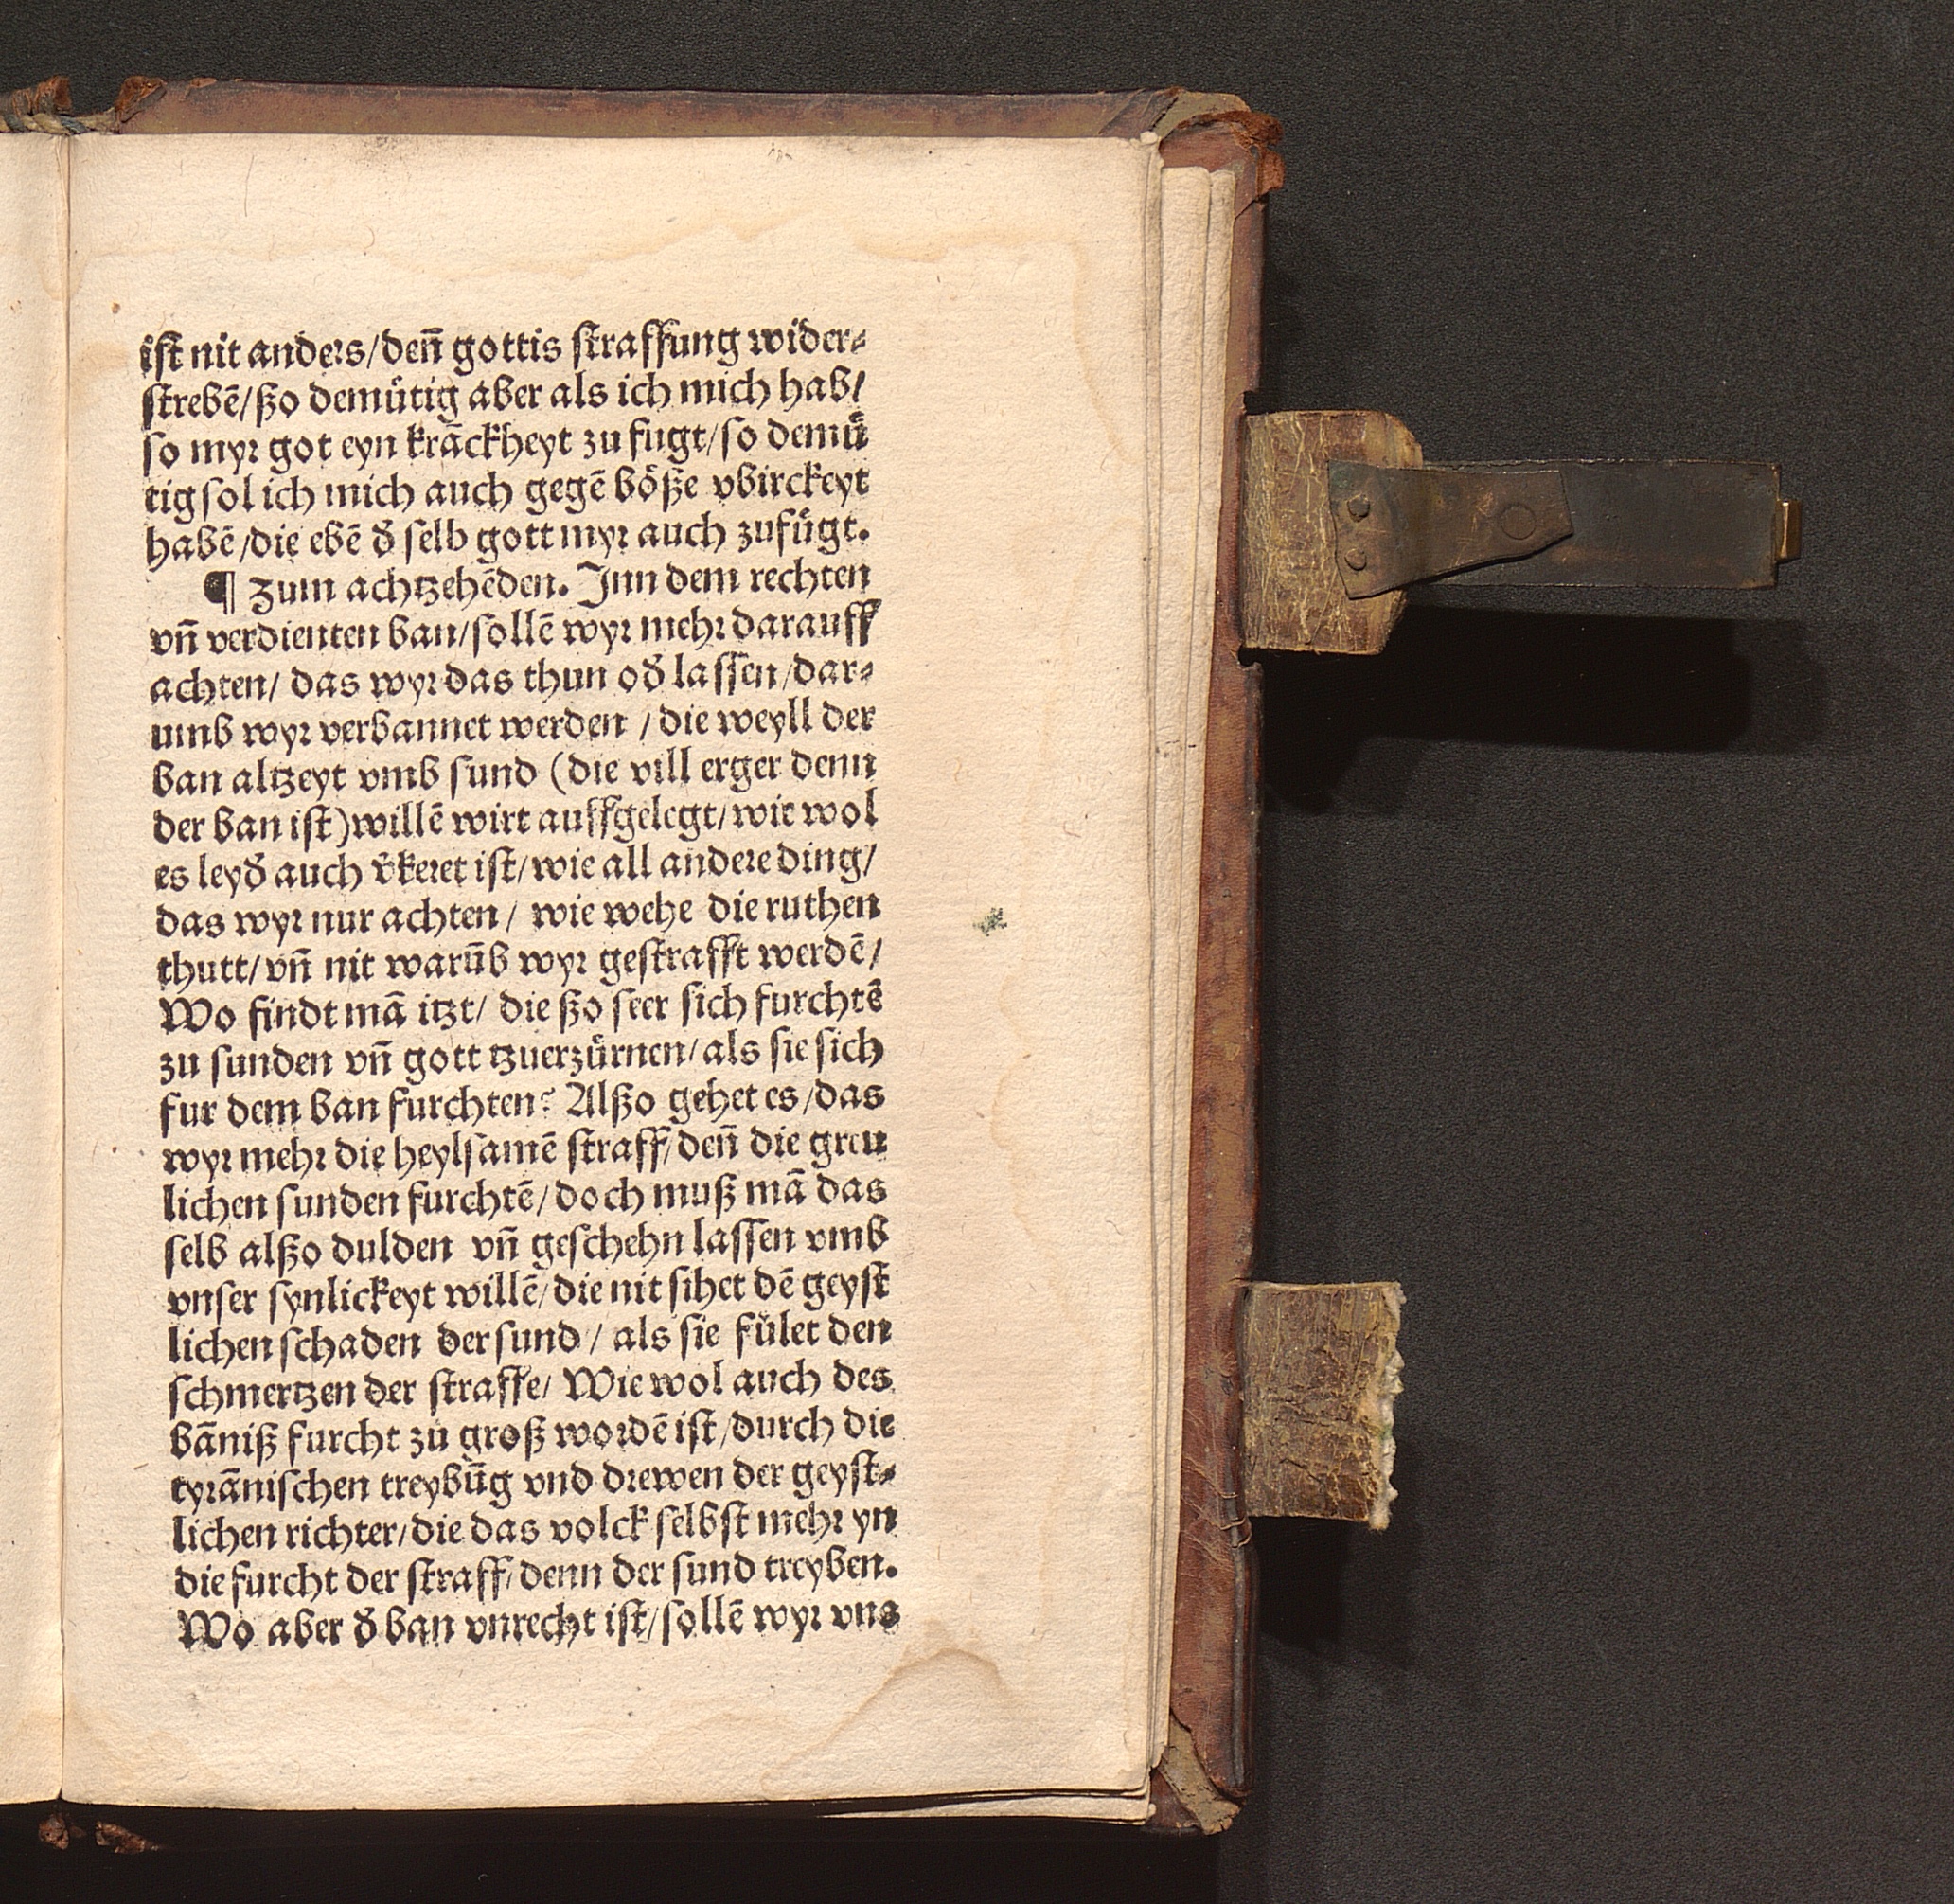 ist nit anders/ deñ gottis straffung wider⸗
strebē/ ßo demütig aber als ich mich hab/
so myr got eyn krāckheyt zu fugt/ so demü
tig sol ich mich auch gegē böße vbirckeyt
habē/ die ebē d̕ selb gott myr auch zufügt.
¶ Zum achtzehēden. Inn dem rechten
vñ verdienten ban/ sollē wyr mehr darauff
achten/ das wyr das thun od̕ lassen/ dar⸗
umb wyr verbannet werden / die weyll der
ban altzeyt vmb sund (die vill erger denn
der ban ist) willē wirt auffgelegt/ wie wol
es leyd̕ auch v̕keret ist/ wie all andere ding/
das wyr nur achten / wie wehe die ruthen
thutt/ vñ nit warūb wyr gestrafft werdē/
Wo findt mā itzt/ die ßo seer sich furchtē
zu sunden vñ gott tzuerzürnen/ als sie sich
fur dem ban furchten? Alßo gehet es/ das
wyr mehr die heylsamē straff/ deñ die greu
lichen sunden furchtē/ doch muß mā das
selb alßo dulden vñ geschehn lassen vmb
vnser synlickeyt willē/ die nit sihet dē geyst
lichen schaden der sund / als sie fület den
schmertzen der straffe/ Wie wol auch des
bāniß furcht zu groß wordē ist/ durch die
tyrānischen treybūg vnd drewen der geyst⸗
lichen richter/ die das volck selbst mehr yn
die furcht der straff/ denn der sund treyben.
Wo aber d̕ ban vnrecht ist/ sollē wyr vns